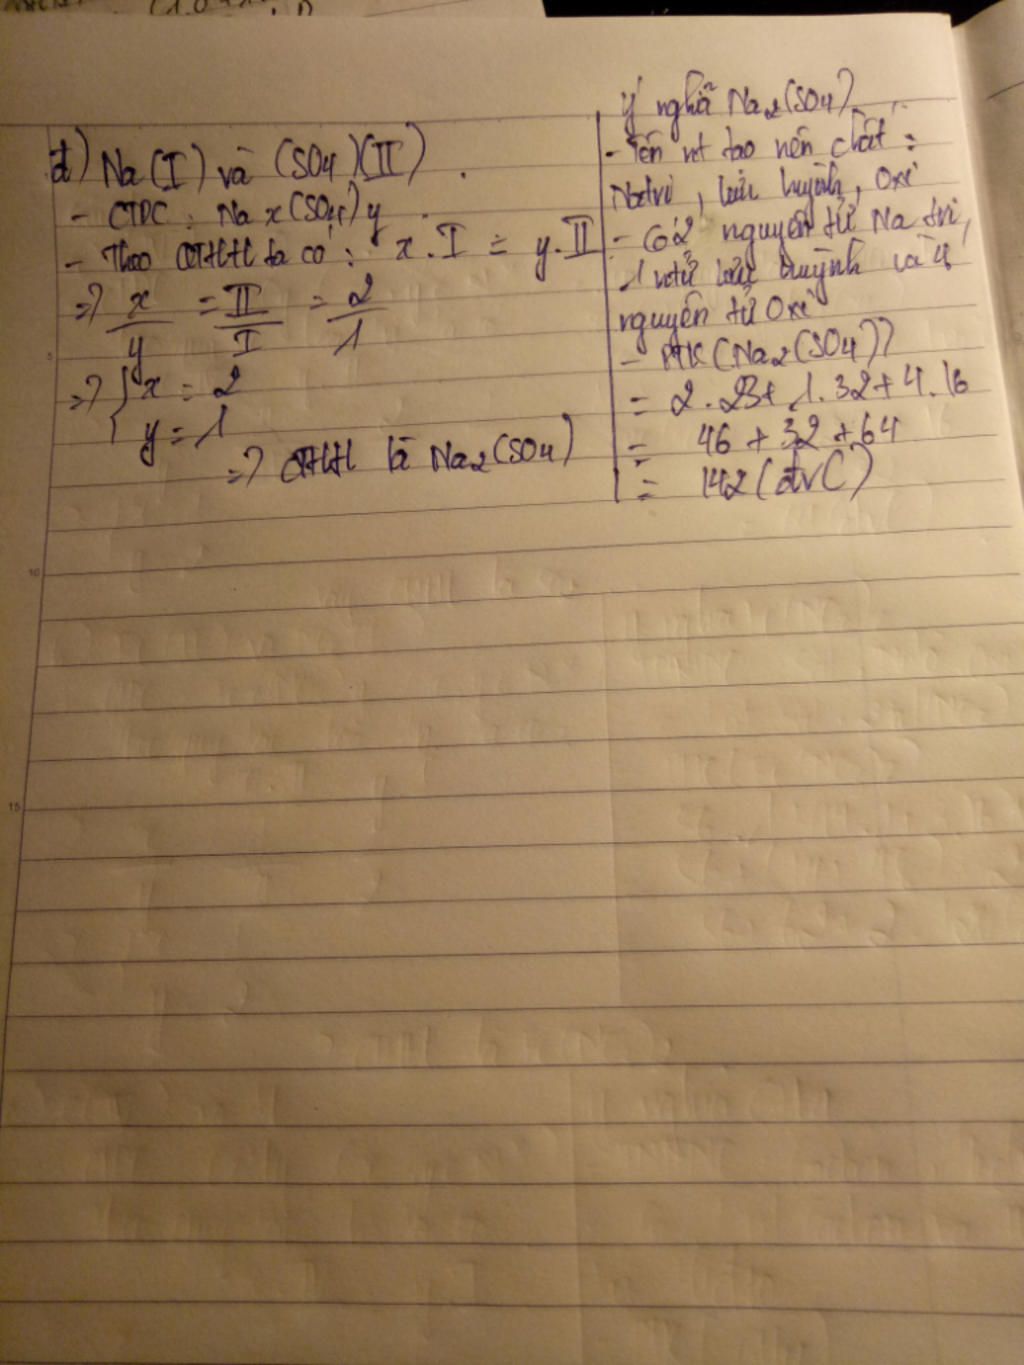 đ) Na(I) và (SO4)(II).
- CTDC: Nax(SO4)y.
- Theo CTHH ta có: x.I = y.II
=> x/y = II/I = 2/1
=> { x = 2
y = 1
=> CTHH là Na2(SO4)
Ý nghĩa Na2(SO4)
- Tên nt tạo nên chất:
Natri, lưu huỳnh, Oxi
- Có 2 nguyên tử Natri,
1 ntử lưu huỳnh và 4
nguyên tử Oxi
- PTK(Na2(SO4))
= 2.23+1.32+4.16
= 46+32+64
= 142 (đvC)
10
15